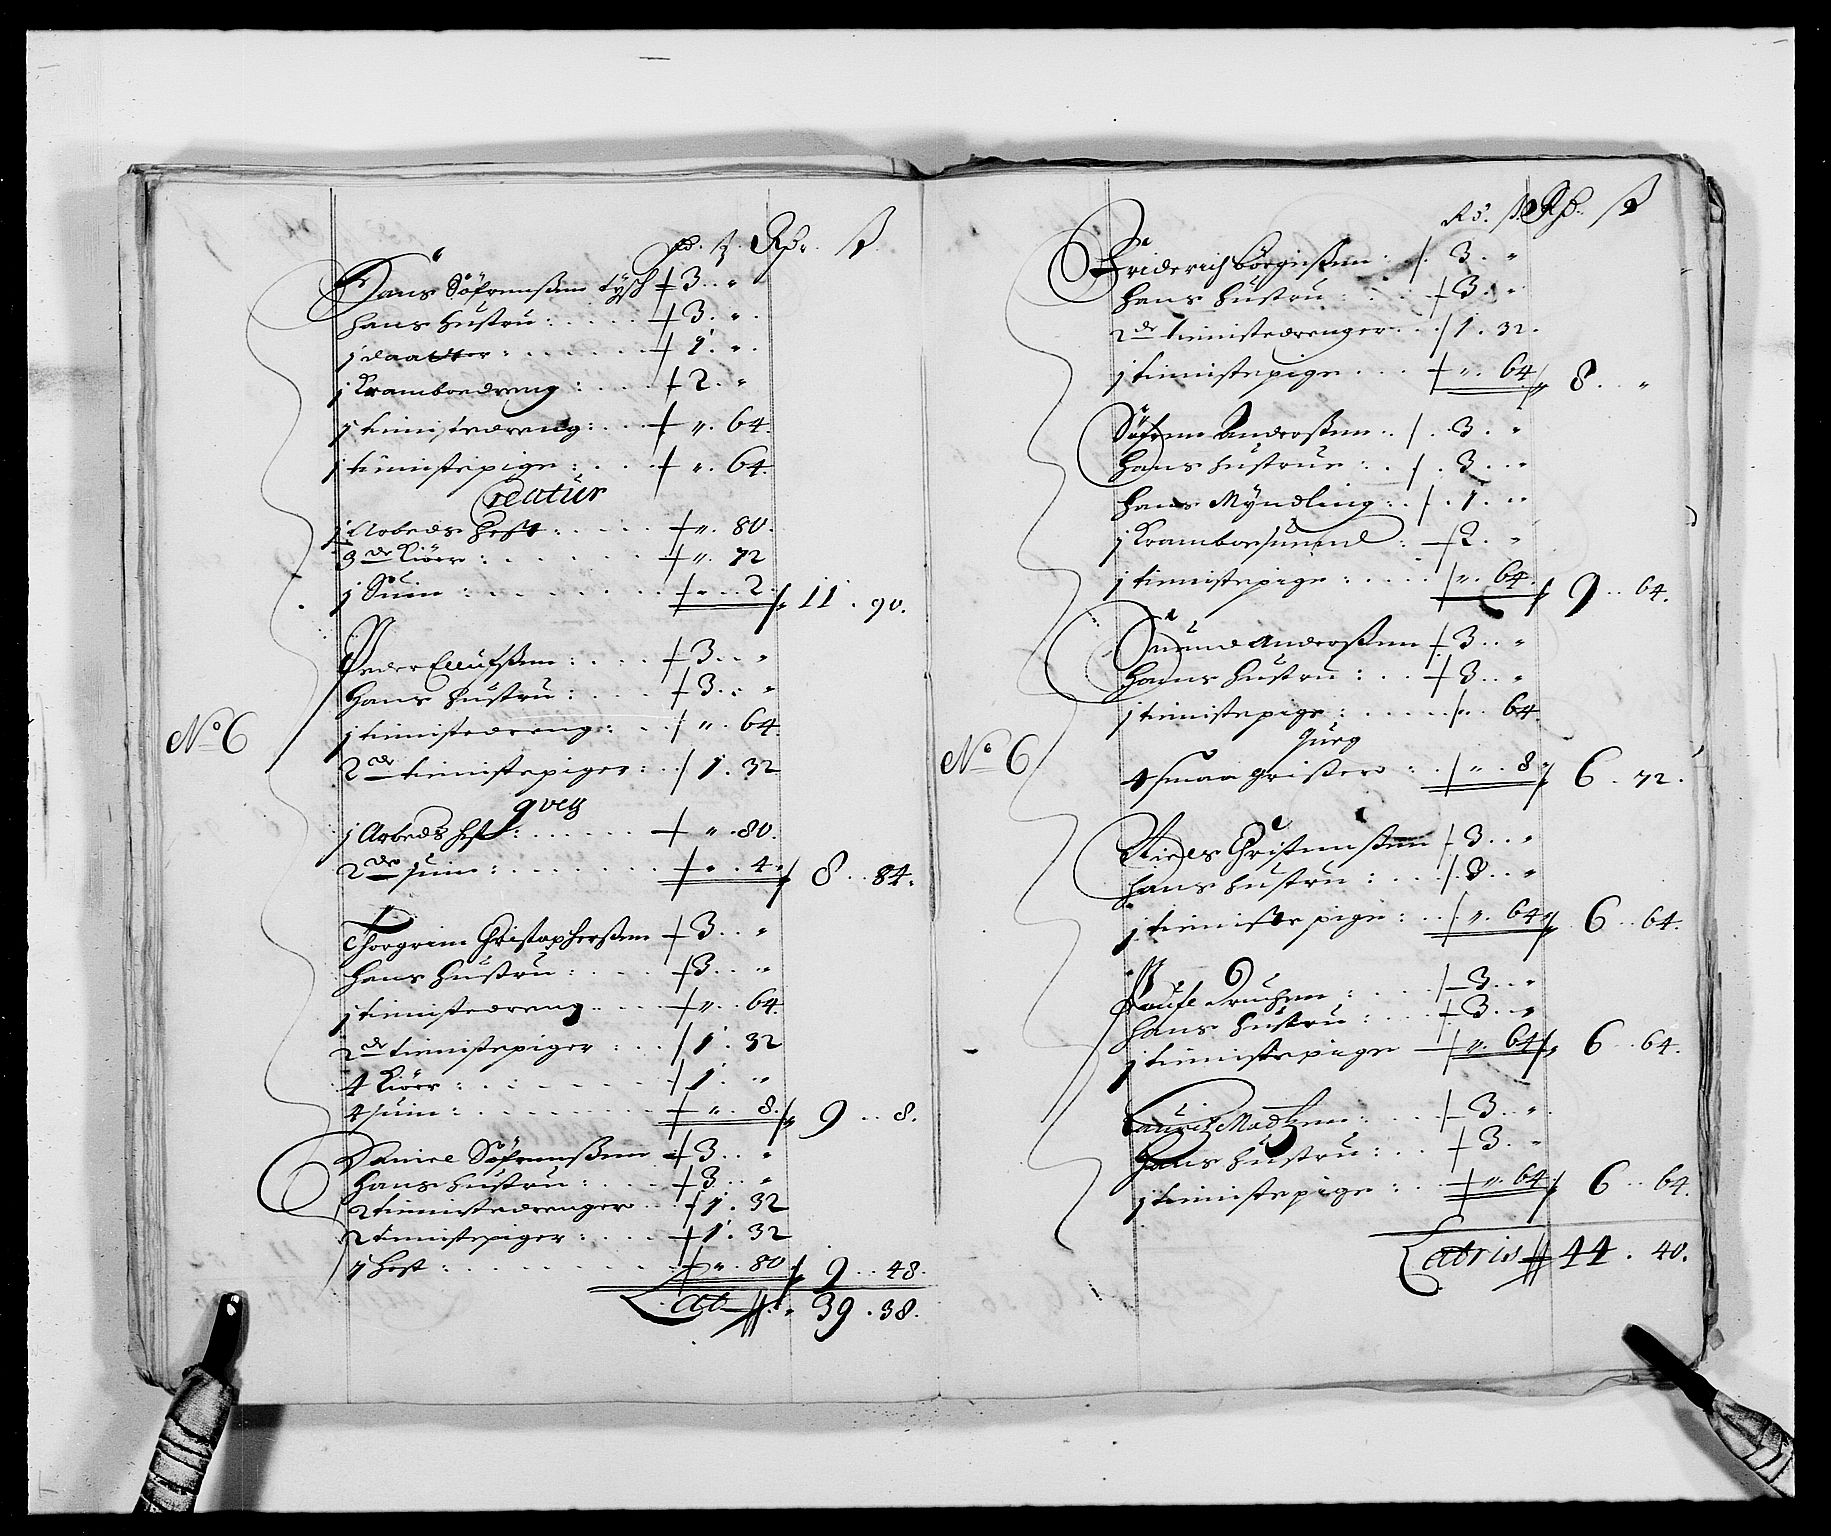 Rd. ß. Rdr. ß
Hans Söfrenßen tysch 3 .. "
Hans Hustru : 3 . "
j daatter : 1 . "
j Kramboedreng : 2 . "
j tienistedreng : " . 64
j tienistepige : " . 64
Creatur
j Arbeds Hest : " . 80
3de Kiöer : " . 72
j Suin : " . 2 11 . 90
Peder Ellufßen : 3 .. "
Hans Hustru : 3 .. "
No 6
j tienistedreng : " . 64
2de tienistepiger : 1 . 32
qveg
j Arbeds hest : " . 80
2de suin : " . 4 8 .. 84
Thorgrim Christopherßen 3 .. "
Hans Hustru : 3 .. "
j tienistedreng " . 64
2de tienistepiger : 1 . 32
4 Kiöer : 1 . "
4 suin : " . 8 9 .. 8
Daniel Söfrenßen 3 .. "
Hans Hustru : 3 .. "
2 tienistedrenger 1 . 32
2 tienistepiger : 1 . 32
j Hest : " . 80 9 .. 48
Lat " 39 . 38
Rd. ß. Rd. ß
Friderich Börgeßen : 3 . "
Hans Hustru : 3 . "
2de tienistedrenger 1 . 32
j tienistepige " . 64 8 .. "
Söfren Anderßen 3 . "
Hans Hustrue : 3 .. "
Hans Myndling : 1 . "
j Kramboesuend : 2 . "
j tienistepige : " . 64 9 .. 64
Suend Anderßen 3 .. "
Hans Hustru : 3 .. "
j tienistepige : " . 64
Queg
No 6
4 smaa grißer : " . 8 6 . 72
Niels Christenßen 3 .. "
Hans Hustru : 3 .. "
j tienistepige : " . 64 6 .. 64
Poufel 3 .. "
Hans Hustru : 3 .. "
j tienistepige " . 64 6 .. 64
Lauritz Madßen 3 .. "
Hans Hustru : 3 .. "
j tienistepige : " . 64 6 .. 64
Latris 44 . 40